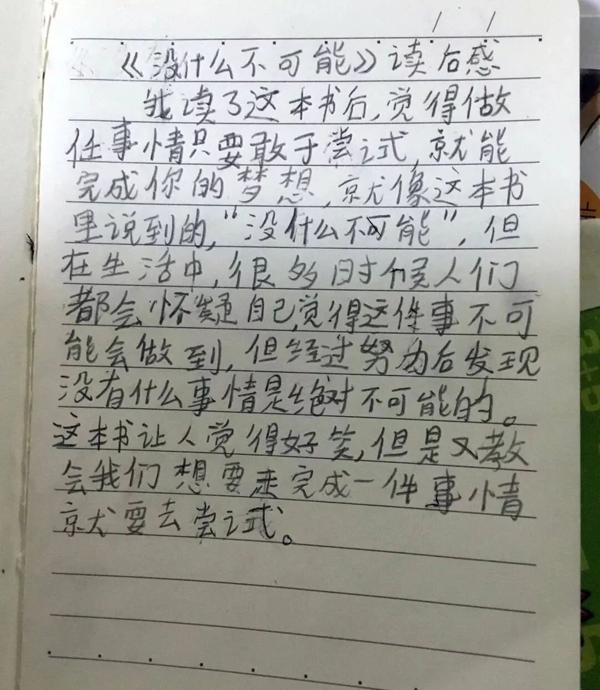 《没什么不可能》读后感
我读了这本书后,觉得做
任事情只要敢于尝试,就能
完成你的梦想,就像这本书
里说到的,“没什么不可能”,但
在生活中,很多时候人们
都会怀疑自己,觉得这件事不可
能会做到,但经过努力后发现
没有什么事情是绝对不可能的。
这本书让人觉得好笑,但是又教
会我们想要来完成一件事情
就要去尝试。